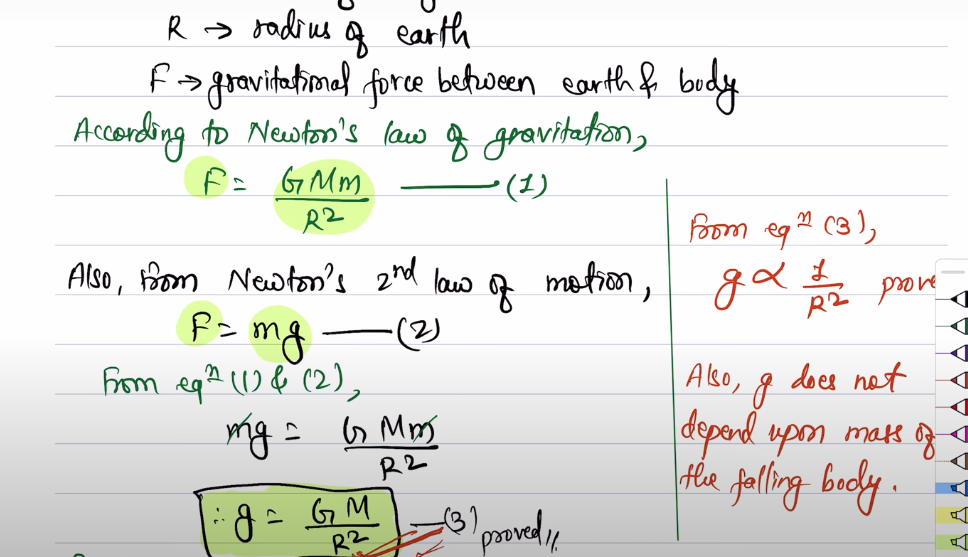 R → radius of earth
F → gravitational force between earth & body
According to Newton's law of gravitation,
F = GMm/R² ——— (1)
Also, from Newton's 2nd law of motion,
F = mg ——— (2)
From eqⁿ (1) & (2),
mg = GMm/R²
∴ g = GM/R² — (3) proved//
From eqⁿ (3),
g ∝ 1/R² prove
Also, g does not
depend upon mass of
the falling body.